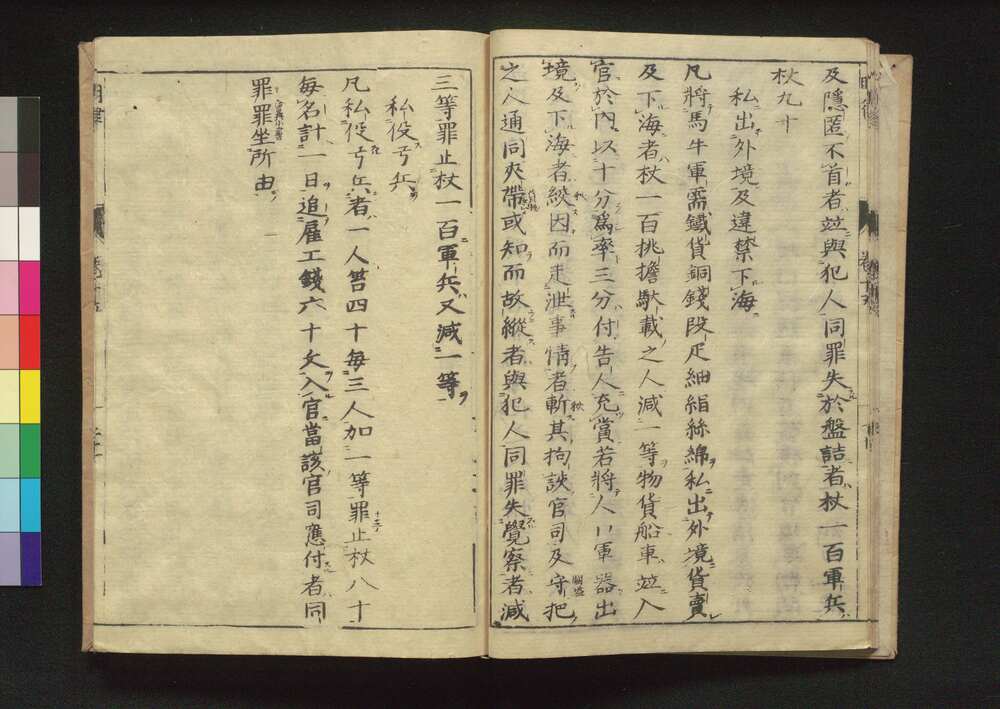 及隱匿不首者竝與犯人同罪失於盤詰者杖一百軍兵
杖九十
私出外境及違禁下海
凡將馬牛軍需鐵貨銅錢段疋細絹絲綿私出外境貨賣
及下海者杖一百挑擔馱載之人減一等物貨船車竝入
官於內以十分爲率三分付告人充賞若將人口軍器出
境及下海者絞因而走泄事情者斬其拘該官司及守把
之人通同夾帶或知而故縱者與犯人同罪失覺察者減
三等罪止杖一百軍兵又減一等
私役弓兵
凡私役弓兵者一人笞四十每三人加一等罪止杖八十
每名計一日追雇工錢六十文入官當該官司應付者同
罪罪坐所由
明律
卷十五